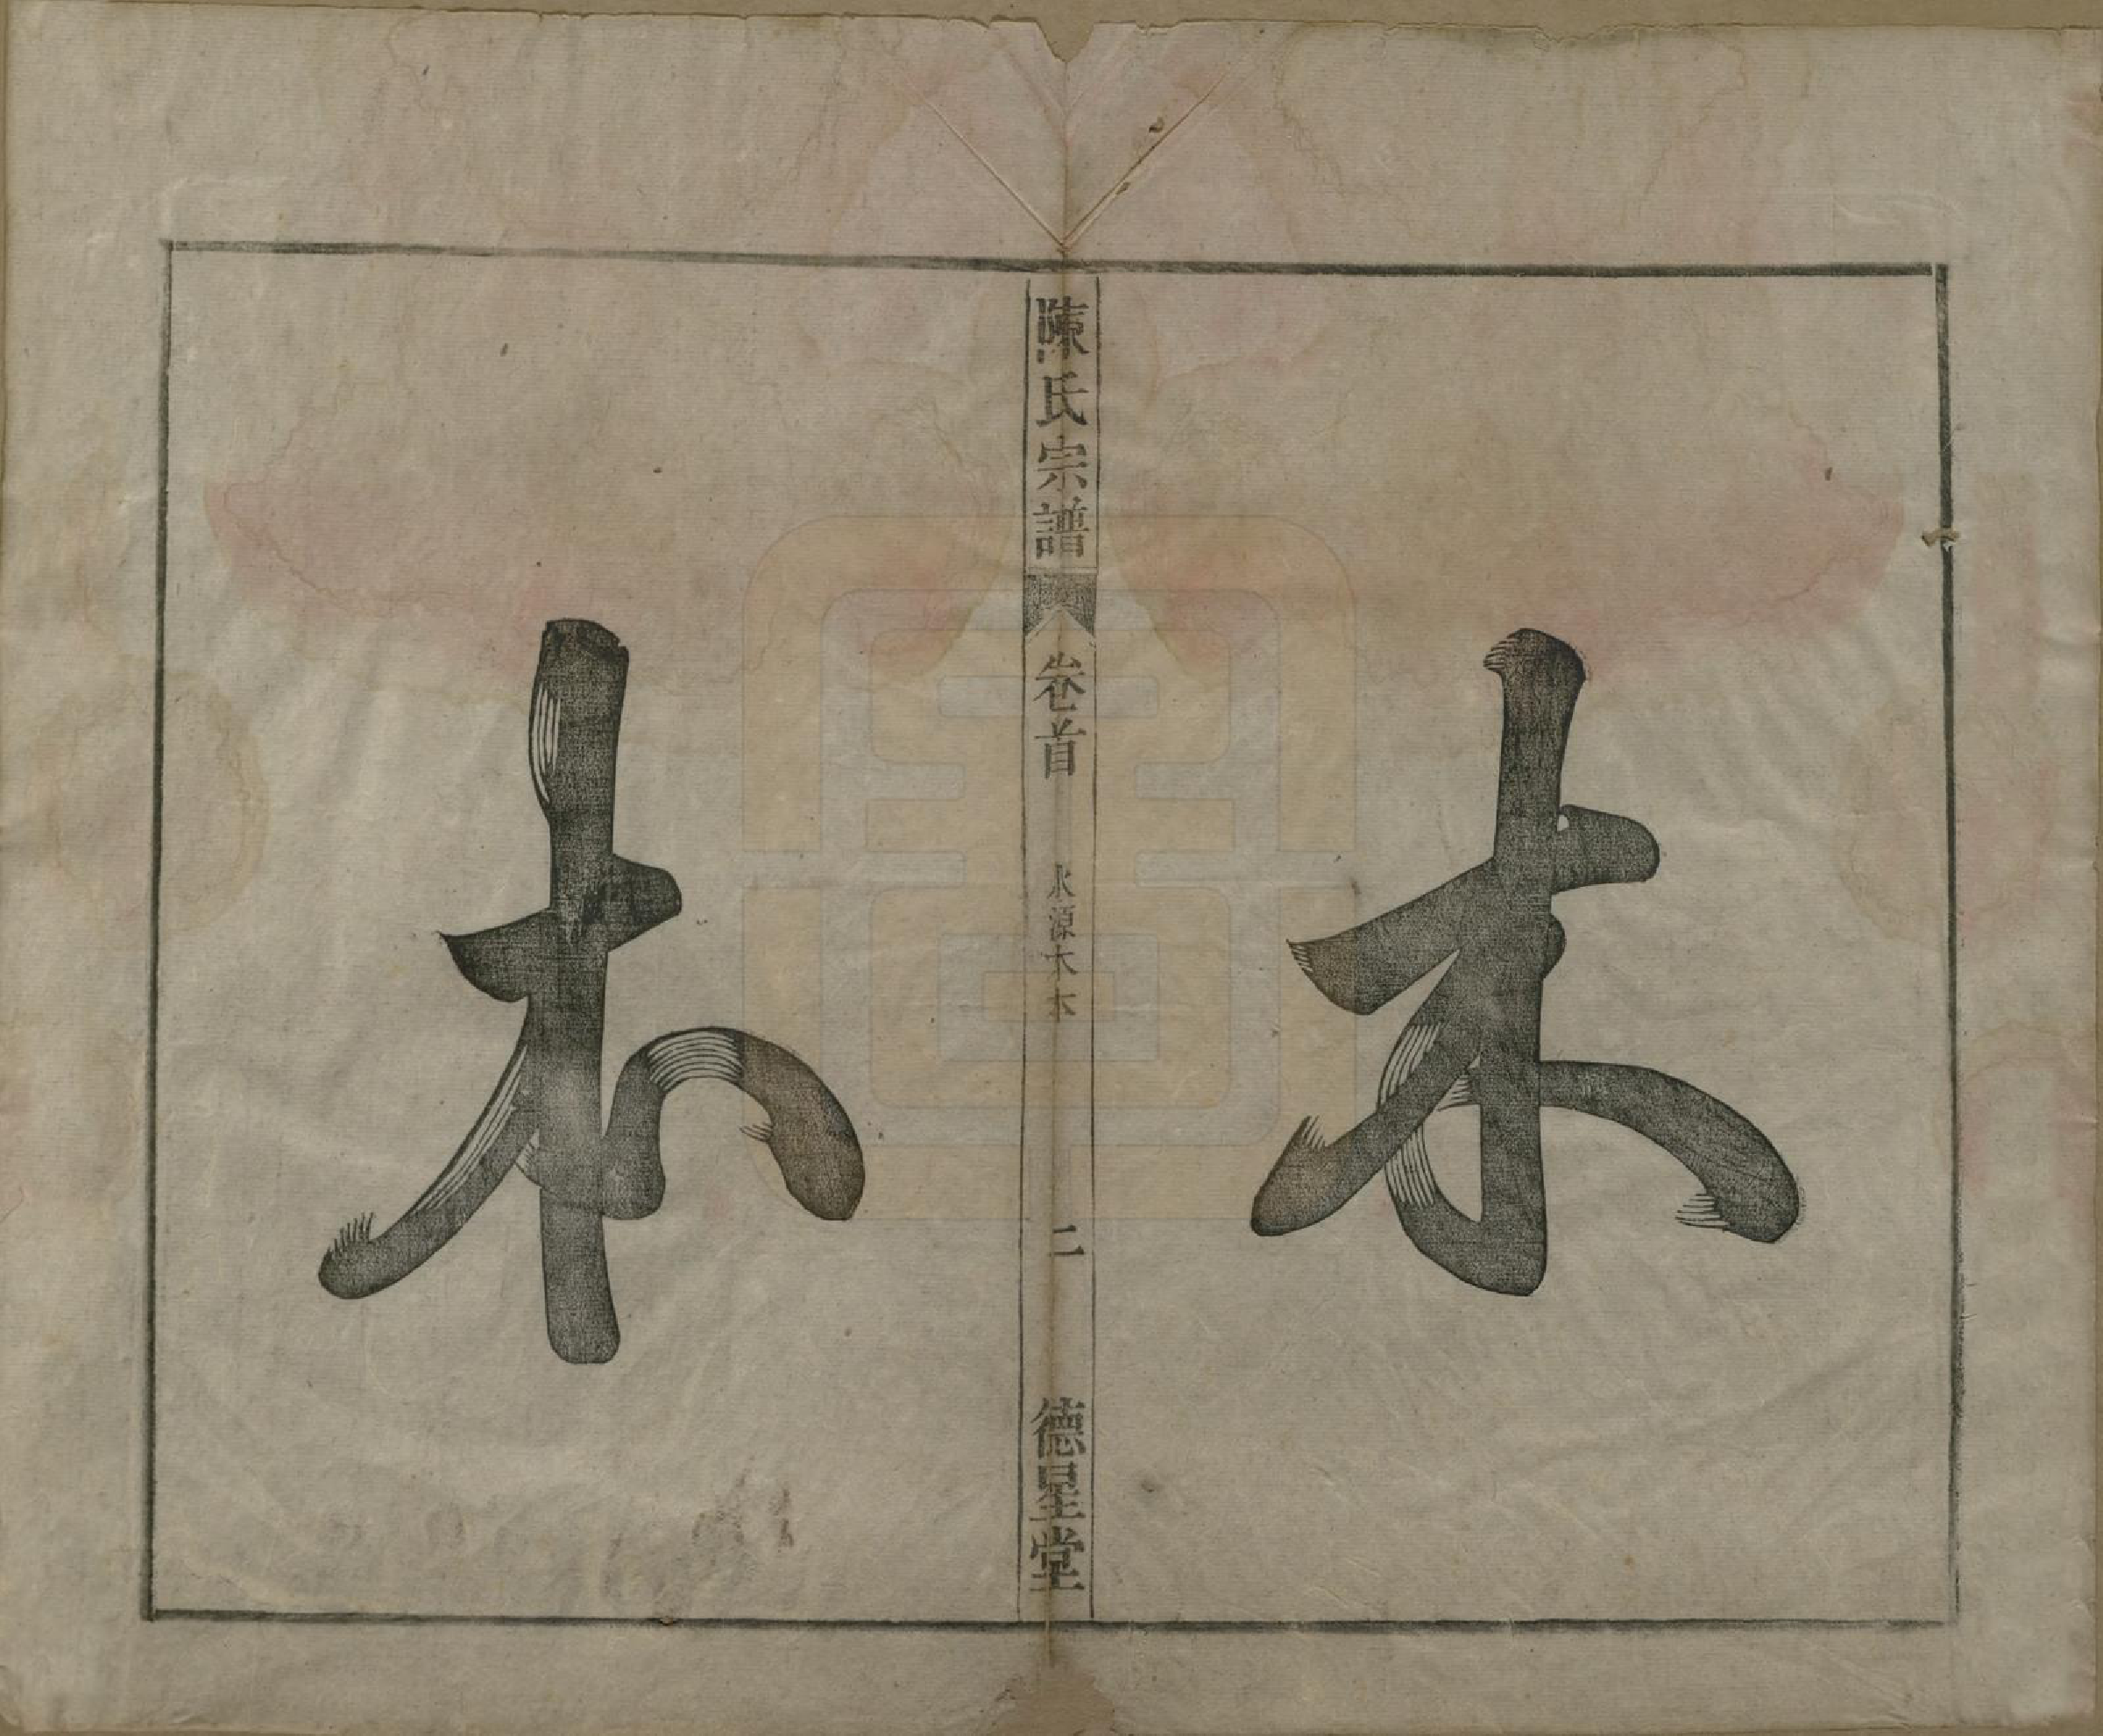 木
陳氏宗譜
卷首
水源木本
二
德星堂
本